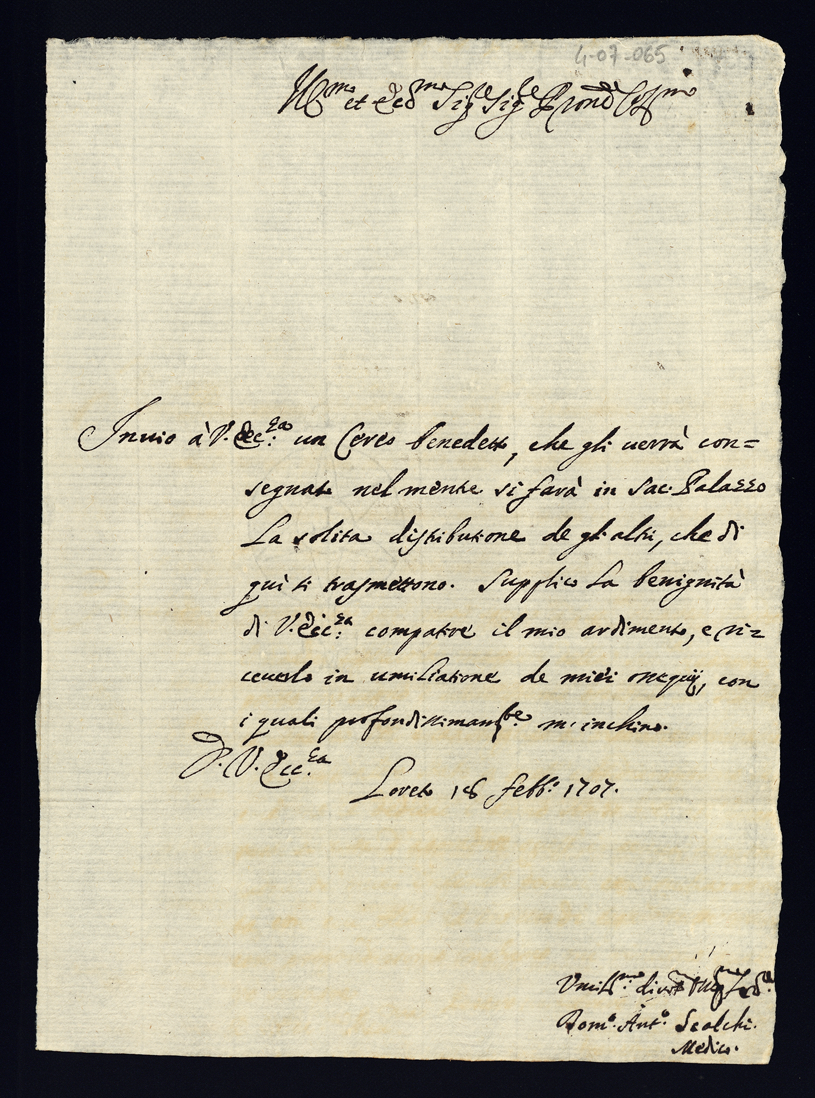 4-07-065
Ill.mo et Ecc.mo Sig.re Sig.re Pron.e Col.mo
Inuio à V. Ecc.za un Cereo benedetto, che gli uerrà con=
segnato nel mentre si farà in Sac: Palazzo
La solita distributione de gli altri, che di
quì si trasmettono. Supplico La benignità
di V. Ecc.za compatire il mio ardimento, e ri=
ceuerlo in umiliatione de miei osequij, con
i quali profondissimam.te m'inchino.
D. V. Ecc.za
Loreto 18 febb.o 1707.
Umil.mo diuot.mo
Dom.o Ant.o Scalchi.
Medico.